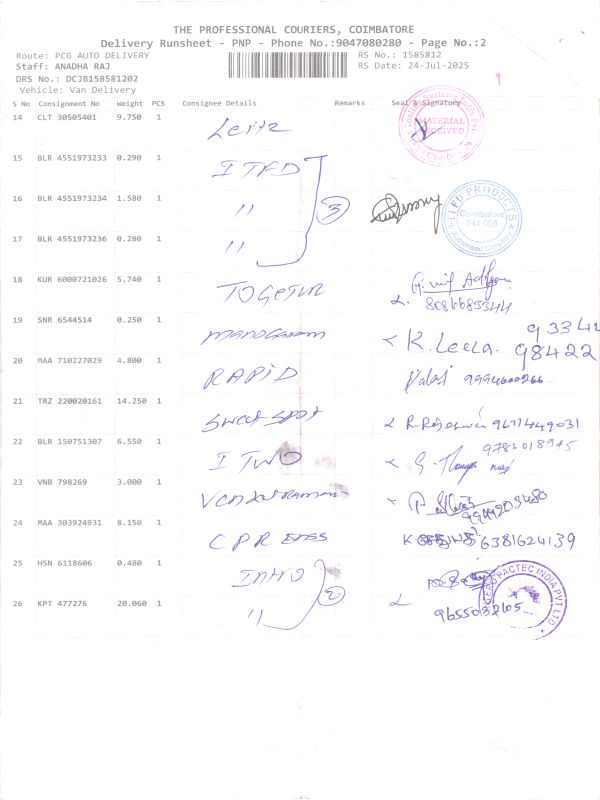 THE PROFESSIONAL COURIERS, COIMBATORE
Delivery Runsheet - PNP - Phone No.:9047080280 - Page No.:2
Route: PCG AUTO DELIVERY
RS No.: 1585812
Staff: ANADHA RAJ
RS Date: 24-Jul-2025
DRS No.: DCJB158581202
Vehicle: Van Delivery
1
S No Consignment No Weight PCS Consignee Details Remarks Seal & Signature
14 CLT 30505401 9.750 1 Leitz
MATERIAL RECEIVED
15 BLR 4551973233 0.290 1 ITFD
16 BLR 4551973234 1.580 1 " 3
ITFD PRODUCTS Coimbatore 641 005
17 BLR 4551973236 0.280 1 "
18 KUR 6000721026 5.740 1 TOGETUR
8086683344
19 SNR 6544514 0.250 1 manogaram K. Leela. 93342
98422
20 MAA 710227029 4.800 1 RAPID
21 TRZ 220020161 14.250 1 SWAT SPOT 9677449031
22 BLR 150751307 6.550 1 I TWO
23 VNB 798269 3.000 1 Venkatraman
24 MAA 303924931 8.150 1 CPR 6381624139
25 HSN 6118606 0.480 1 Intro 2
PACTEC INDIA PVT LTD
26 KPT 477276 20.060 1 "